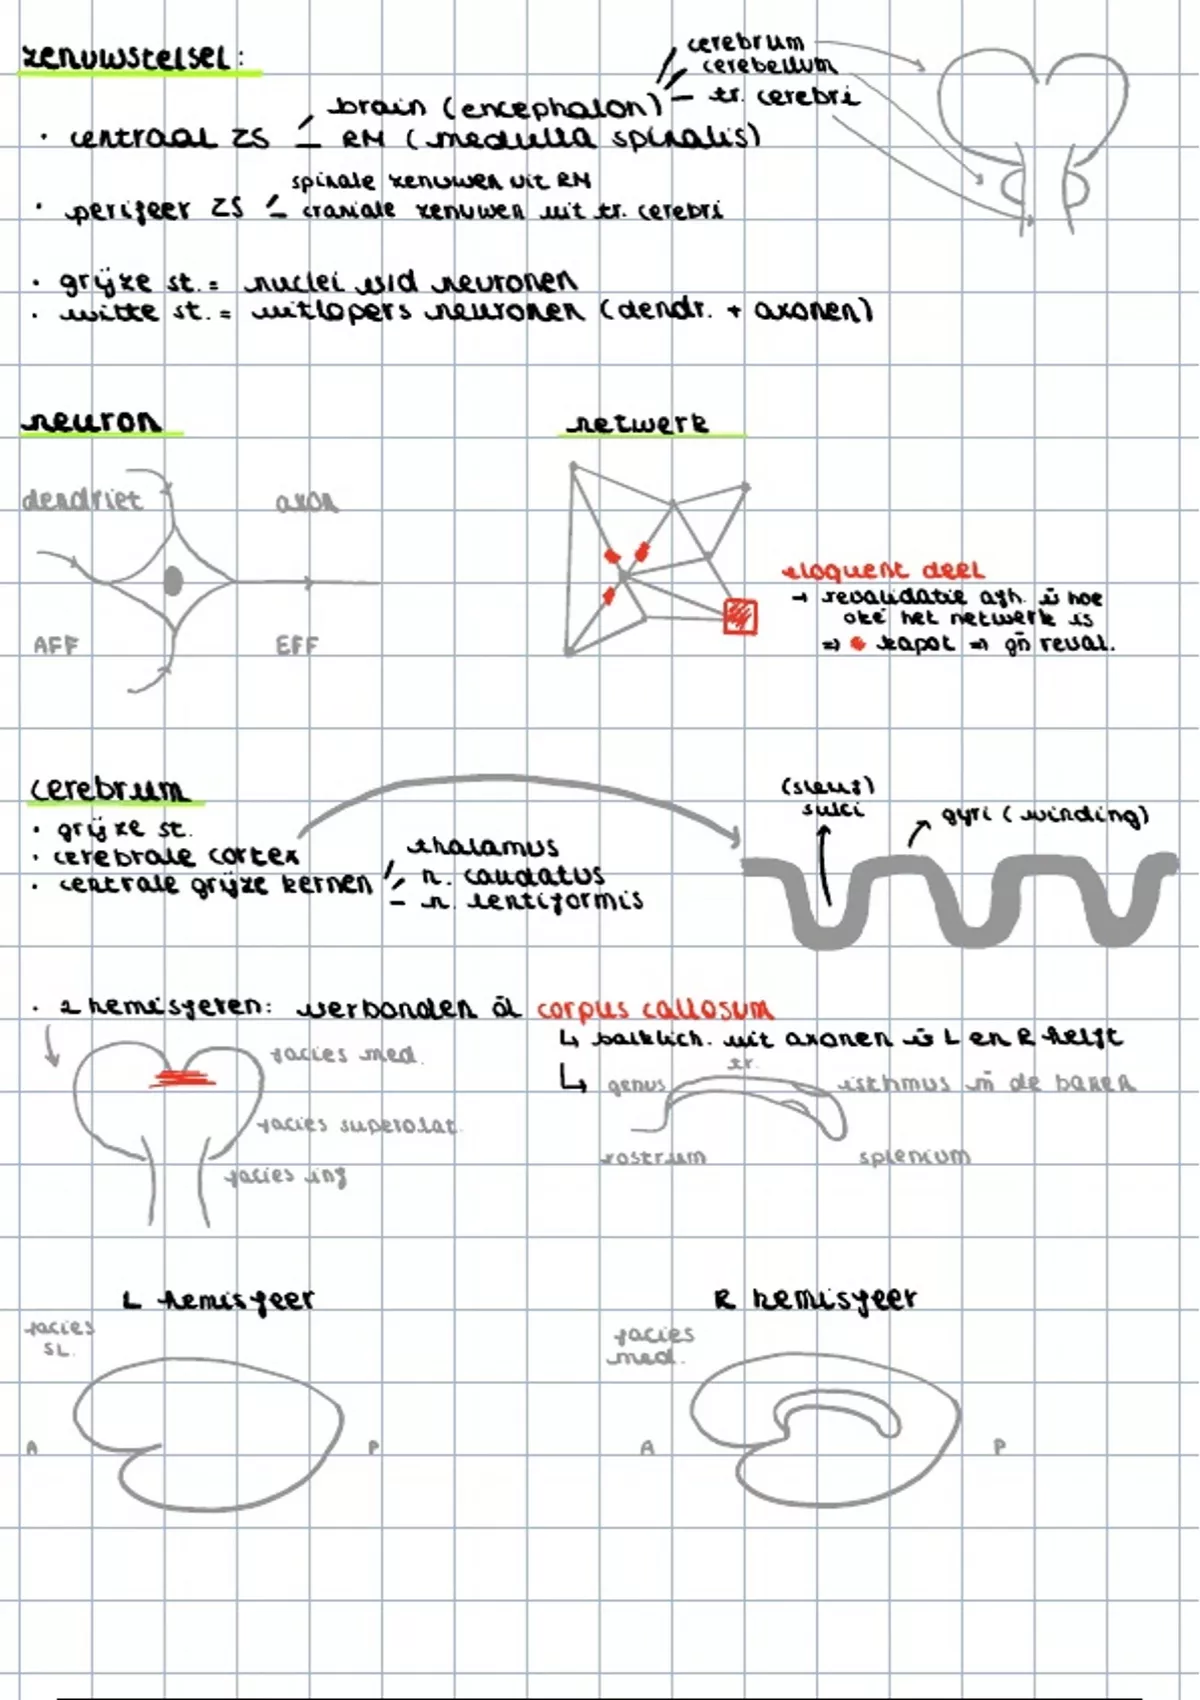 zenuwstelsel:
cerebrum
cerebellum
tr. cerebri
brain (encephalon)
• centraal ZS
RM (medulla spinalis)
spinale zenuwen uit RM
• perifeer ZS
craniale zenuwen uit tr. cerebri
• grijze st. = nuclei v/d neuronen
• witte st. = uitlopers neuronen (dendr. + axonen)
neuron
dendriet
axon
AFF
EFF
netwerk
eloquent deel
→ revalidatie afh. v hoe
oké het netwerk is
⇒ kapot ⇒ gn̄ reval.
cerebrum
• grijze st.
• cerebrale cortex
• centrale grijze kernen
thalamus
n. caudatus
n. lentiformis
(sleuf)
sulci
gyri (winding)
• 2 hemisferen: verbonden dl corpus callosum
↳ balklich. uit axonen v L en R helft
↳ genus
tr.
isthmus m̄ de banen
rostrum
splenium
facies med.
facies superolat.
facies inf
L hemisfeer
facies
SL.
A
P
R hemisfeer
facies
med.
A
P